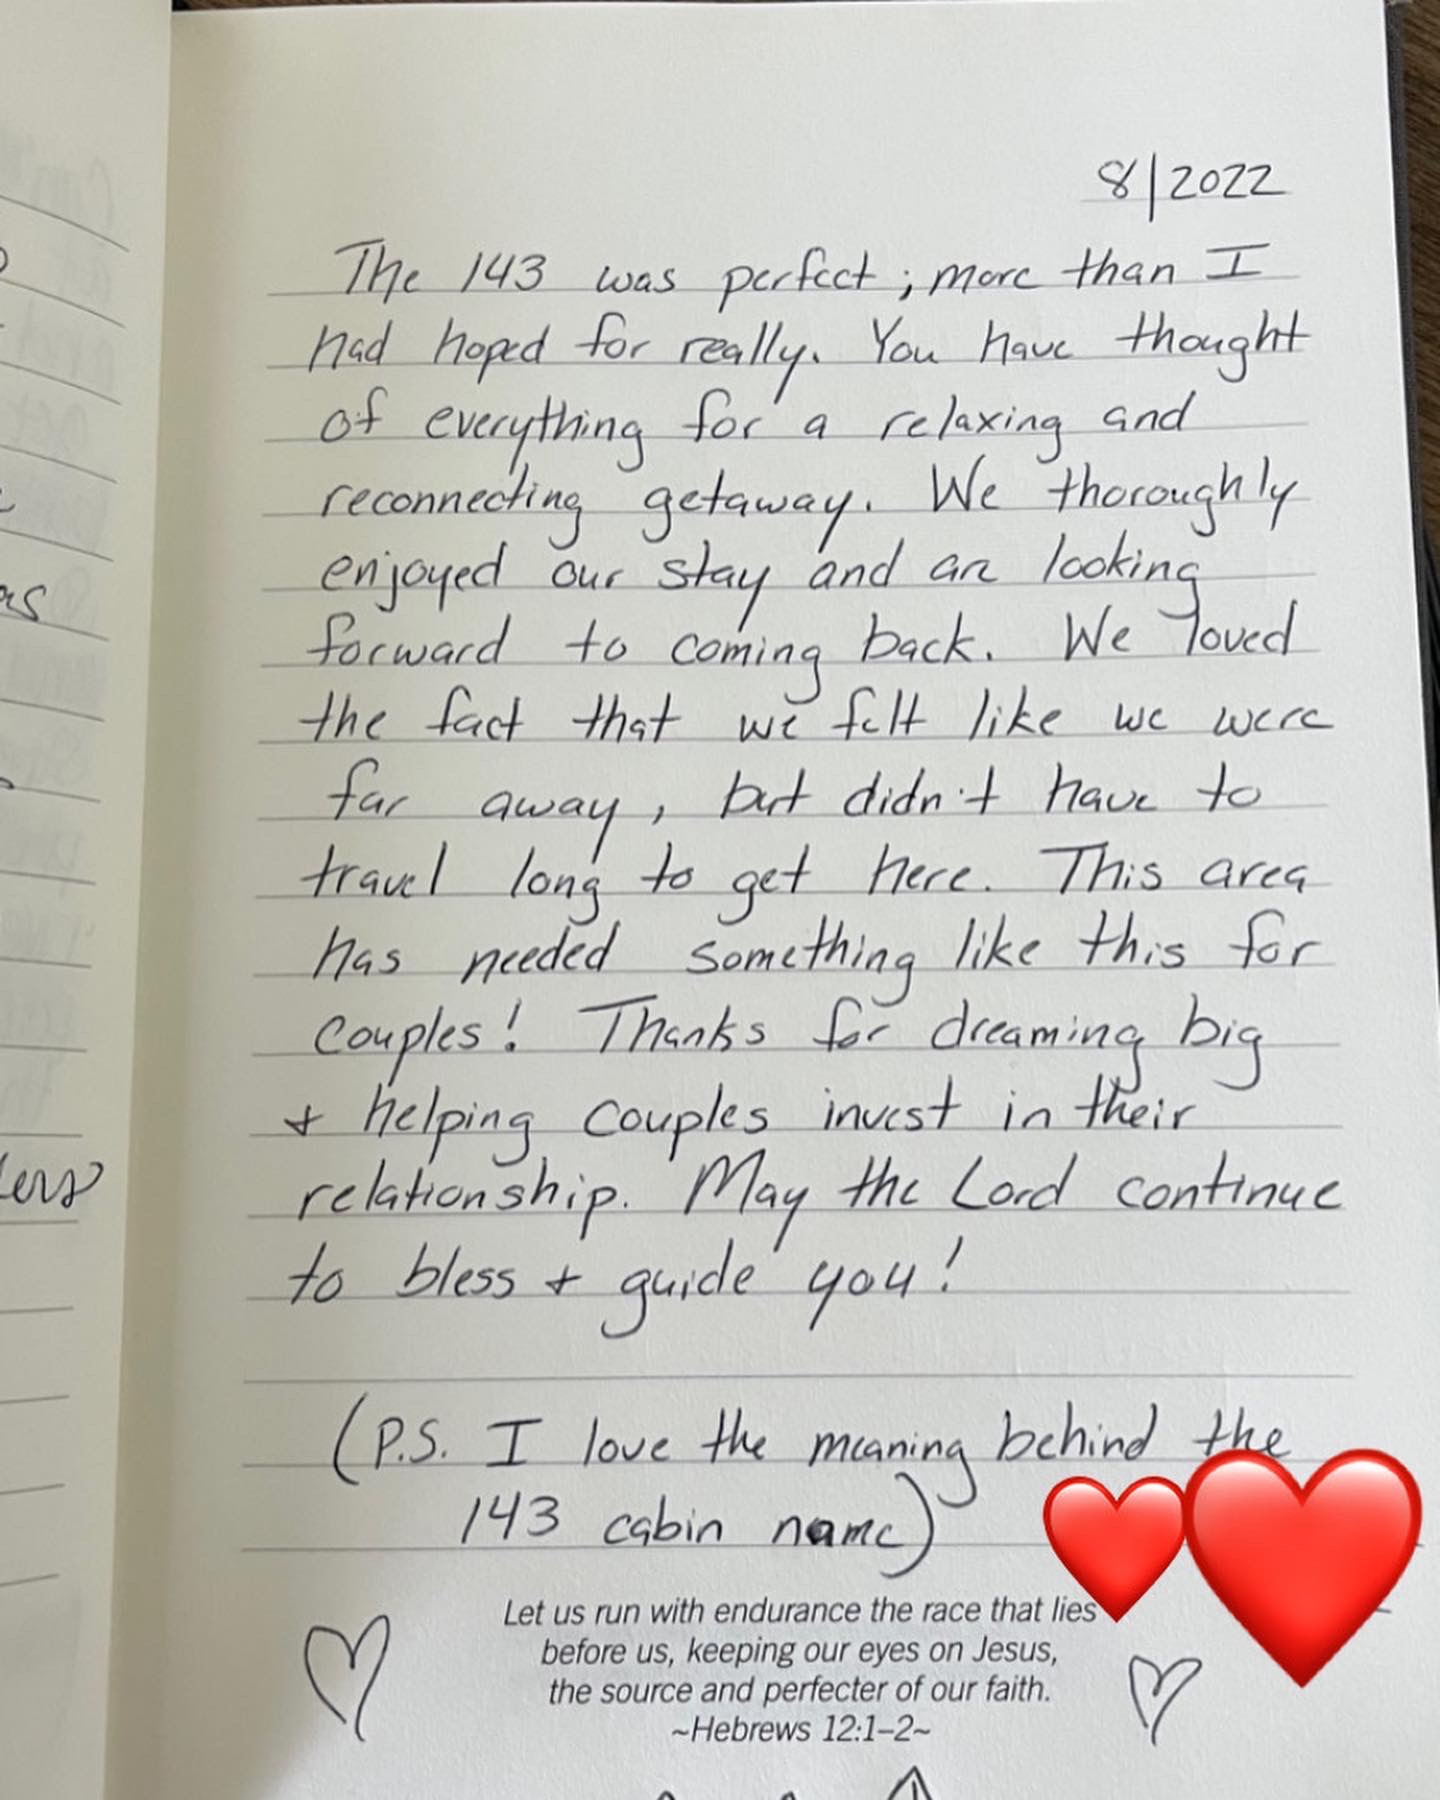 8/2022
The 143 was perfect; more than I
had hoped for really. You have thought
of everything for a relaxing and
reconnecting getaway. We thoroughly
enjoyed our stay and are looking
forward to coming back. We loved
the fact that we felt like we were
far away, but didn't have to
travel long to get here. This area
has needed something like this for
couples! Thanks for dreaming big
+ helping couples invest in their
relationship. May the Lord continue
to bless + guide you!
(P.S. I love the meaning behind the
143 cabin name)
Let us run with endurance the race that lies
before us, keeping our eyes on Jesus,
the source and perfecter of our faith.
~Hebrews 12:1–2~